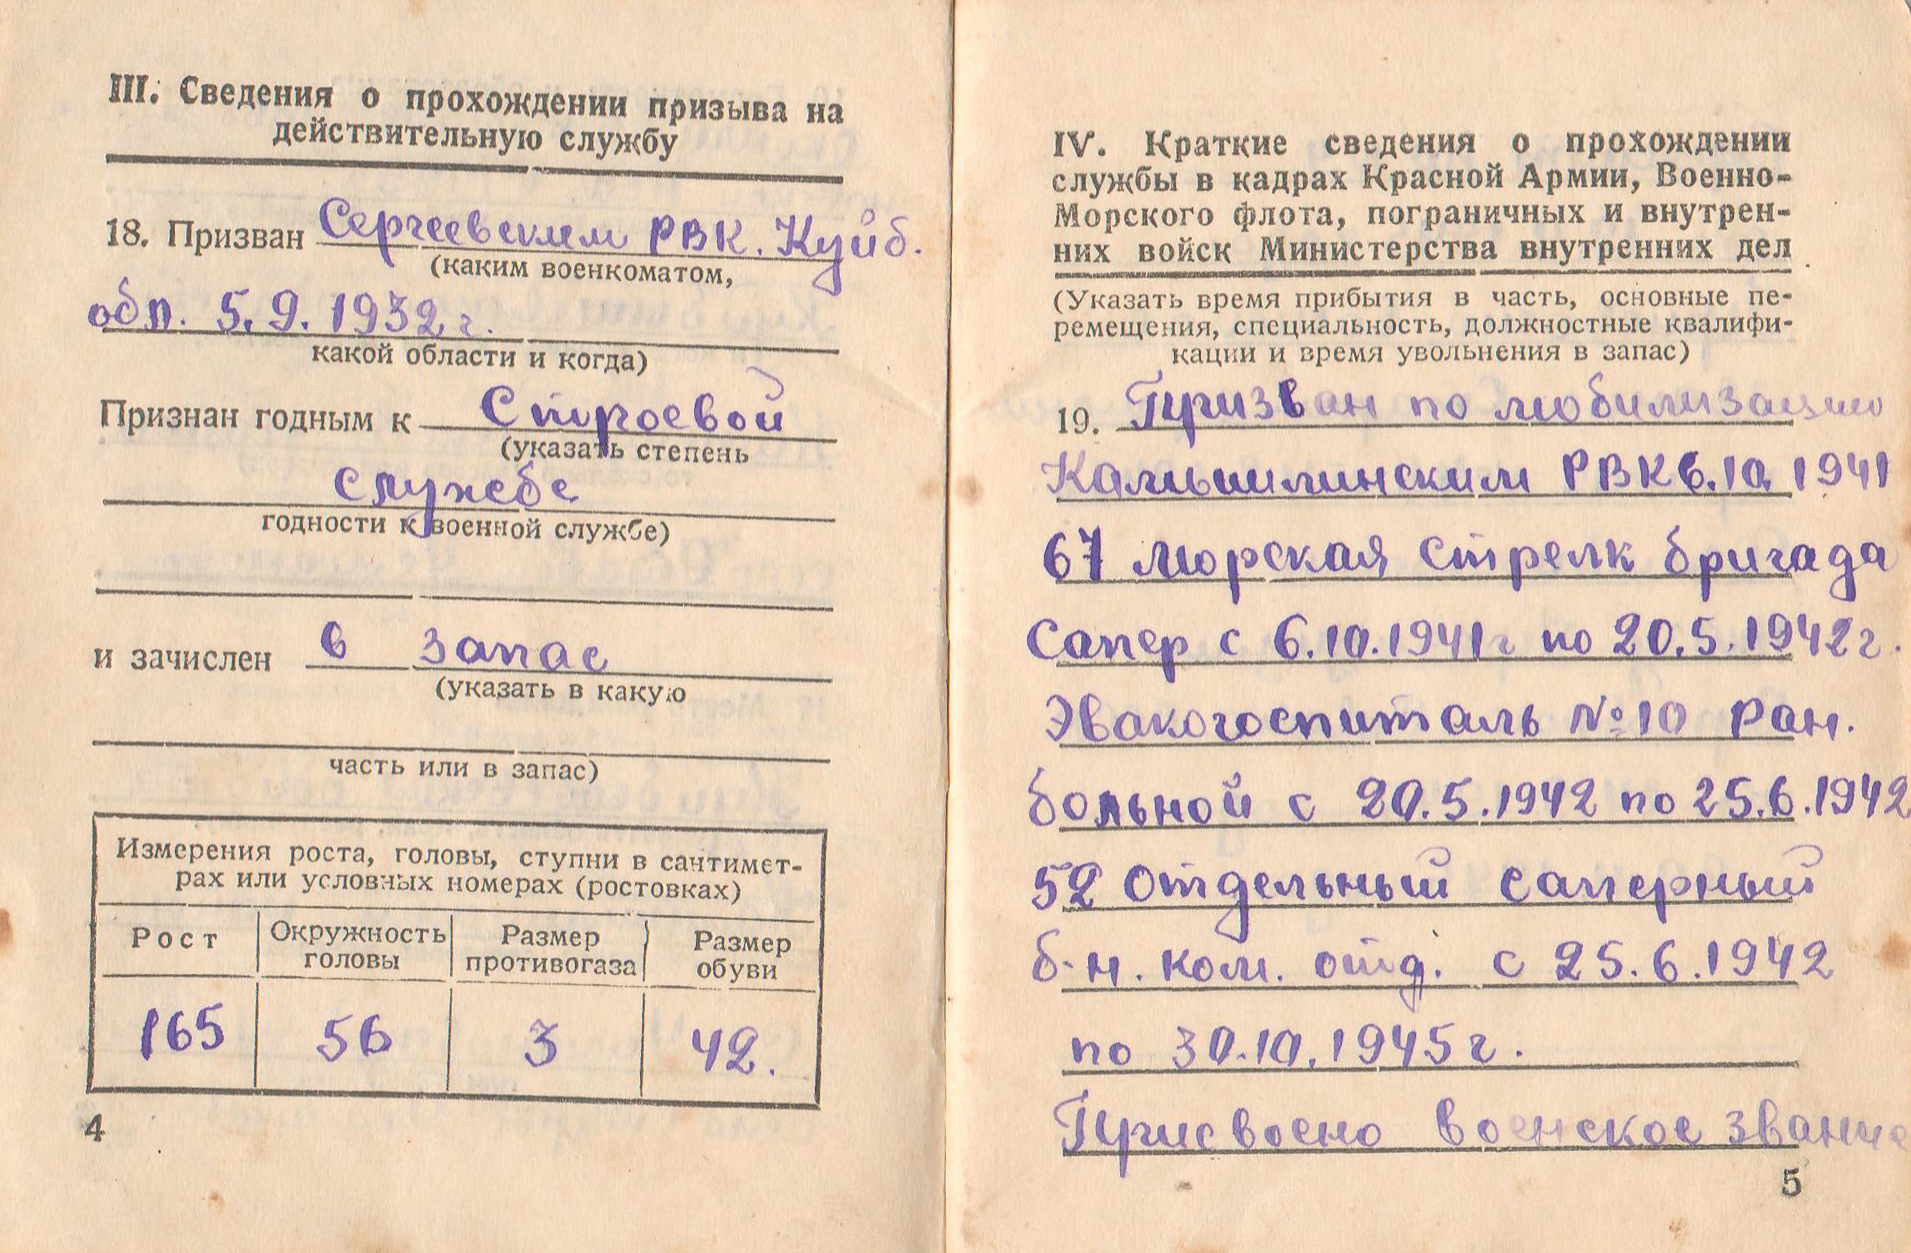 III. Сведения о прохождении призыва на
действительную службу
18. Призван Сергеевским РВК. Куйб.
(каким военкоматом,
обл. 5.9.1932 г.
какой области и когда)
Признан годным к Строевой
(указать степень
службе
годности к военной службе)
и зачислен в запас
(указать в какую
часть или в запас)
Измерения роста, головы, ступни в сантимет-
рах или условных номерах (ростовках)
Рост Окружность головы Размер противогаза Размер обуви
165 56 3 42.
4
IV. Краткие сведения о прохождении
службы в кадрах Красной Армии, Военно-
Морского флота, пограничных и внутрен-
них войск Министерства внутренних дел
(Указать время прибытия в часть, основные пе-
ремещения, специальность, должностные квалифи-
кации и время увольнения в запас)
19. Призван по мобилизации
Камышлинским РВК 6.10.1941
67 морская стрелк бригада
Сапер с 6.10.1941г по 20.5.1942г.
Эвакогоспиталь №10 ран.
больной с 20.5.1942 по 25.6.1942
52 отдельный саперный
б-н. ком. отд. с 25.6.1942
по 30.10.1945г.
Присвоено военское звание
5